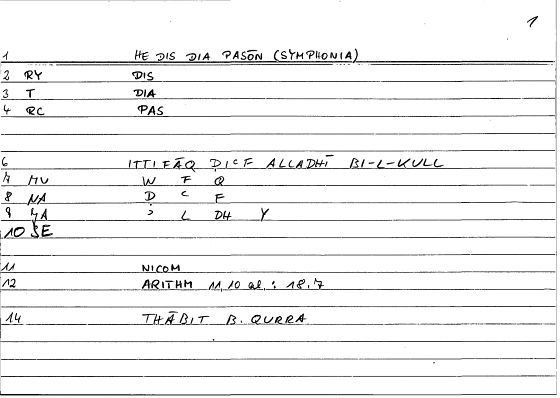 1
1 HE DIS DIA PASŌN (SYMPHONIA)
2 RY DIS
3 T DIA
4 RC PAS
6 ITTIFĀQ ḌIᶜF ALLADHĪ BI-L-KULL
7 MU W F Q
8 NA Ḍ ᶜ F
9 YA ʾ L DH Y
10 SE
11 NICOM
12 ARITHM 11,10 al. : 18.7
14 THĀBIT B. QURRA